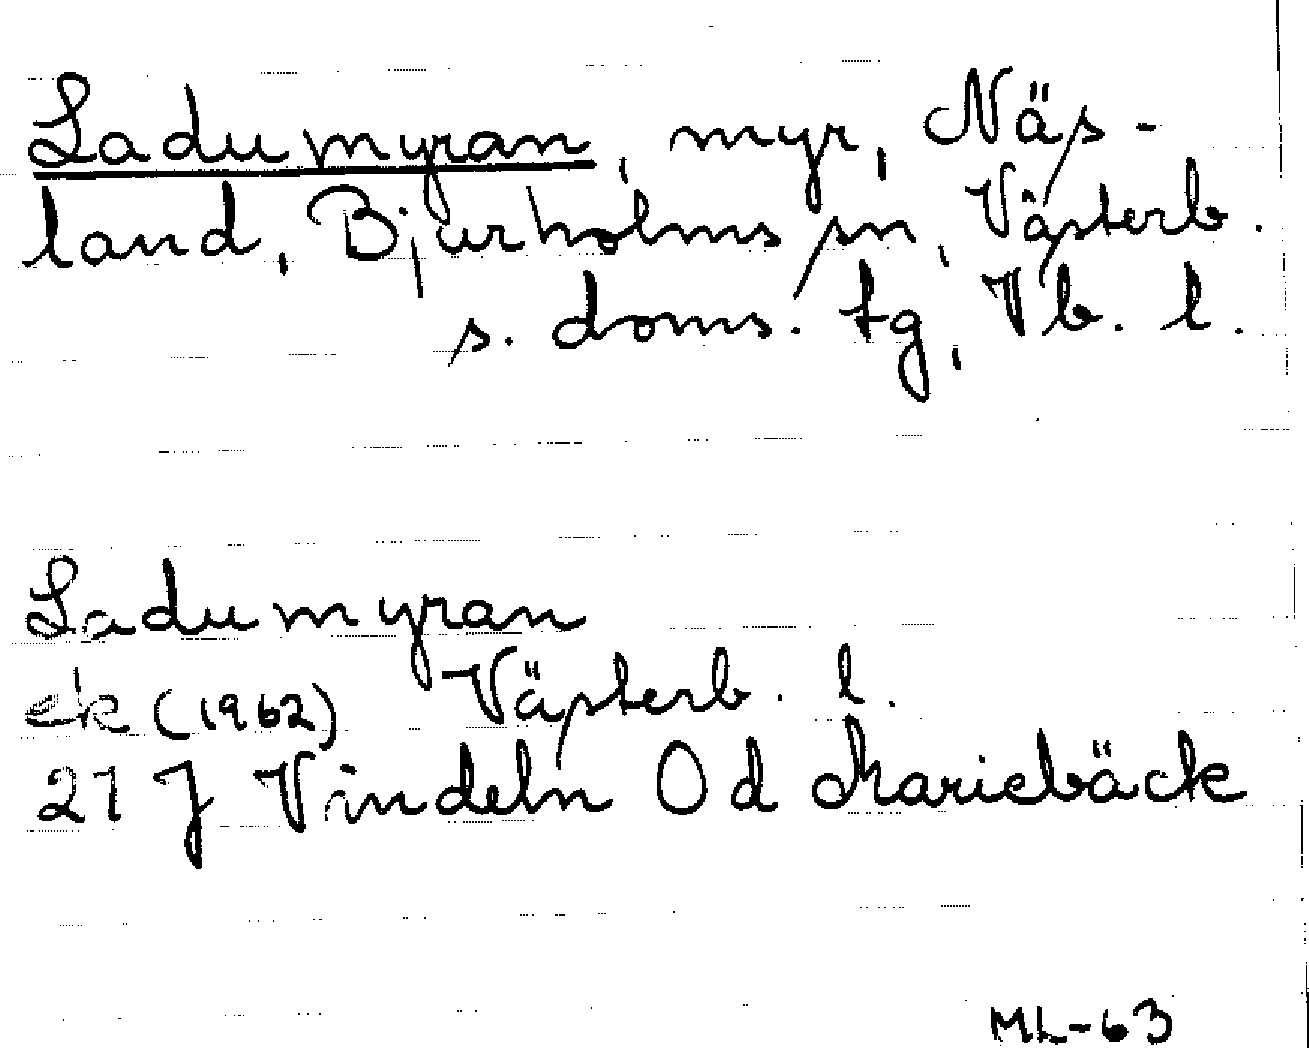 Ladumyran, myr, Näs-
land, Bjurholms sn, Västerb.
s. doms. tg, Vb. l.
Ladumyran
ek (1962) Västerb. l.
21 J Vindeln 0 d Mariebäck
ML-63